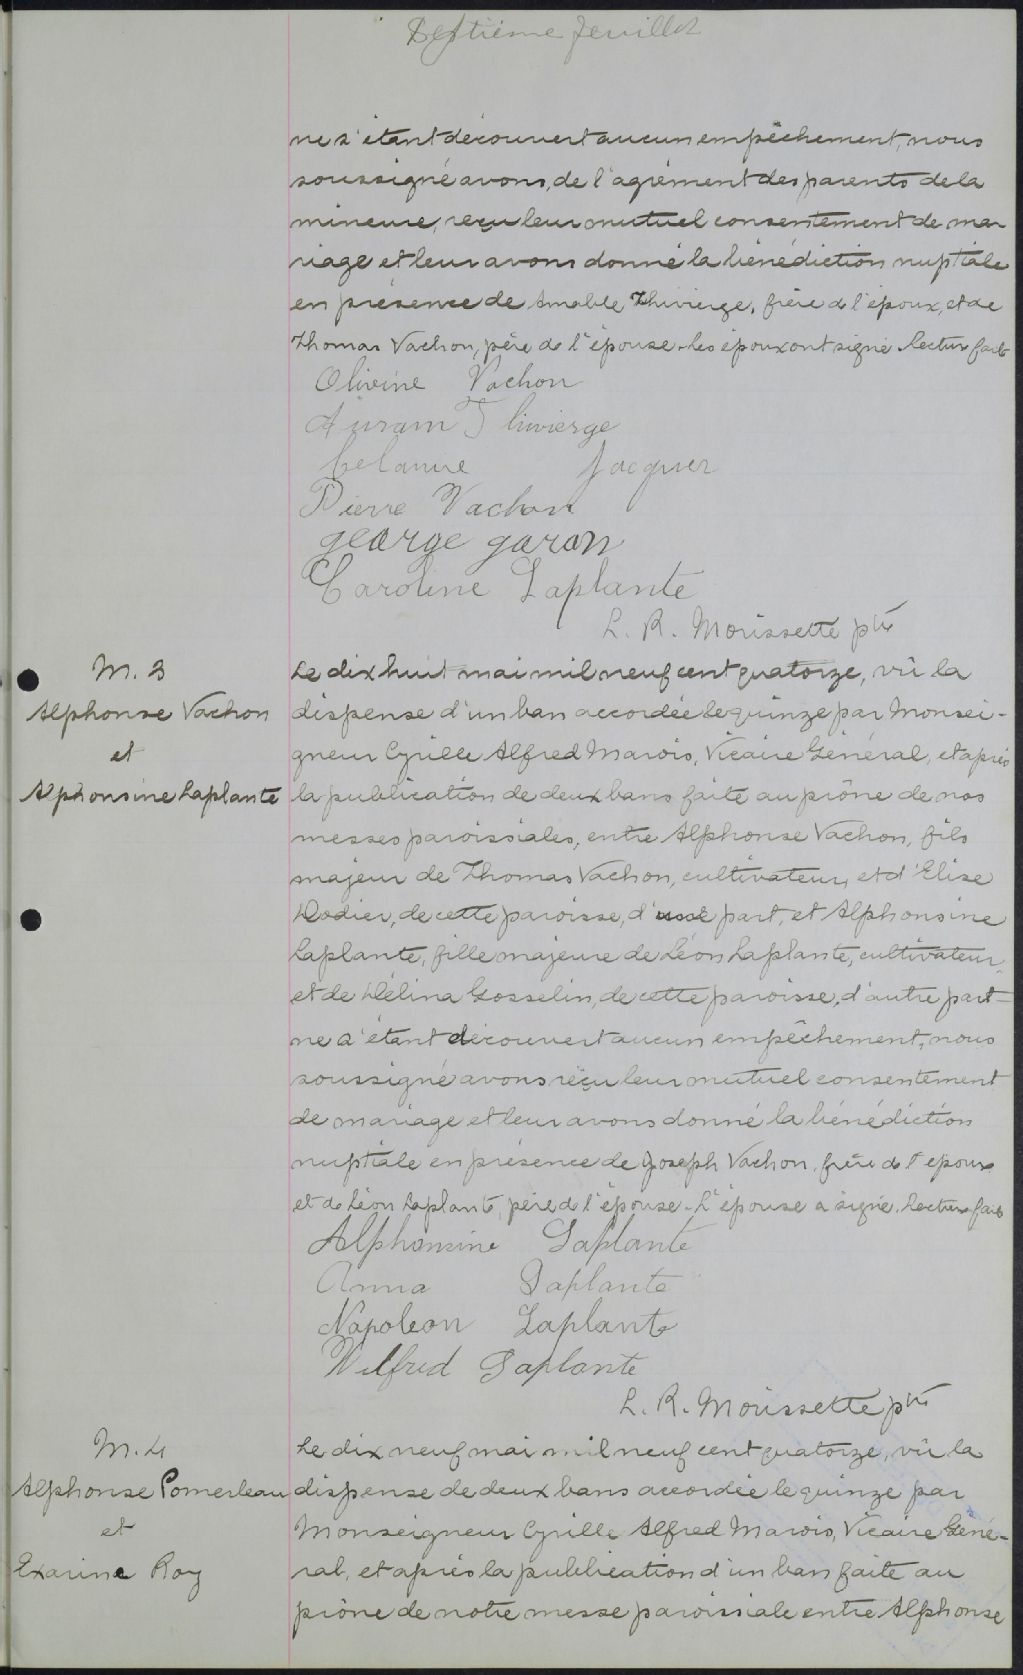 Septième feuillet
ne s'étant découvert aucun empêchement, nous
soussigné avons, de l'agrément des parents de la
mineure, reçu leur mutuel consentement de ma-
riage et leur avons donné la bénédiction nuptiale
en présence de Amable Thivierge, frère de l'époux, et de
Thomas Vachon, père de l'épouse. Les époux ont signé. Lecture faite
Olivine Vachon
Thivierge
Jacques
Pierre Vachon
george garon
Caroline Laplante
L. R. Morissette ptre
M. 3
Alphonse Vachon
et
Alphonsine Laplante
Le dix huit mai mil neuf cent quatorze, vû la
dispense d'un ban accordée le quinze par Monsei-
gneur Cyrille Alfred Marois, Vicaire Général, et après
la publication de deux bans faite au prône de nos
messes paroissiales, entre Alphonse Vachon, fils
majeur de Thomas Vachon, cultivateur, et d'Elise
Dodier, de cette paroisse, d'une part, et Alphonsine
Laplante, fille majeure de Léon Laplante, cultivateur,
et de Délina Gosselin, de cette paroisse, d'autre part
ne s'étant découvert aucun empêchement, nous
soussigné avons reçu leur mutuel consentement
de mariage et leur avons donné la bénédiction
nuptiale en présence de Joseph Vachon, frère de l'époux
et de Léon Laplante, père de l'épouse. L'épouse a signé. Lecture faite
Alphonsine Laplante
Anna Laplante
Napoleon Laplante
Wilfred Laplante
L. R. Morissette ptre
M. 4
Alphonse Pomerleau
et
Exarine Roy
Le dix neuf mai mil neuf cent quatorze, vû la
dispense de deux bans accordée le quinze par
Monseigneur Cyrille Alfred Marois, Vicaire Géné-
ral, et après la publication d'un ban faite au
prône de notre messe paroissiale entre Alphonse